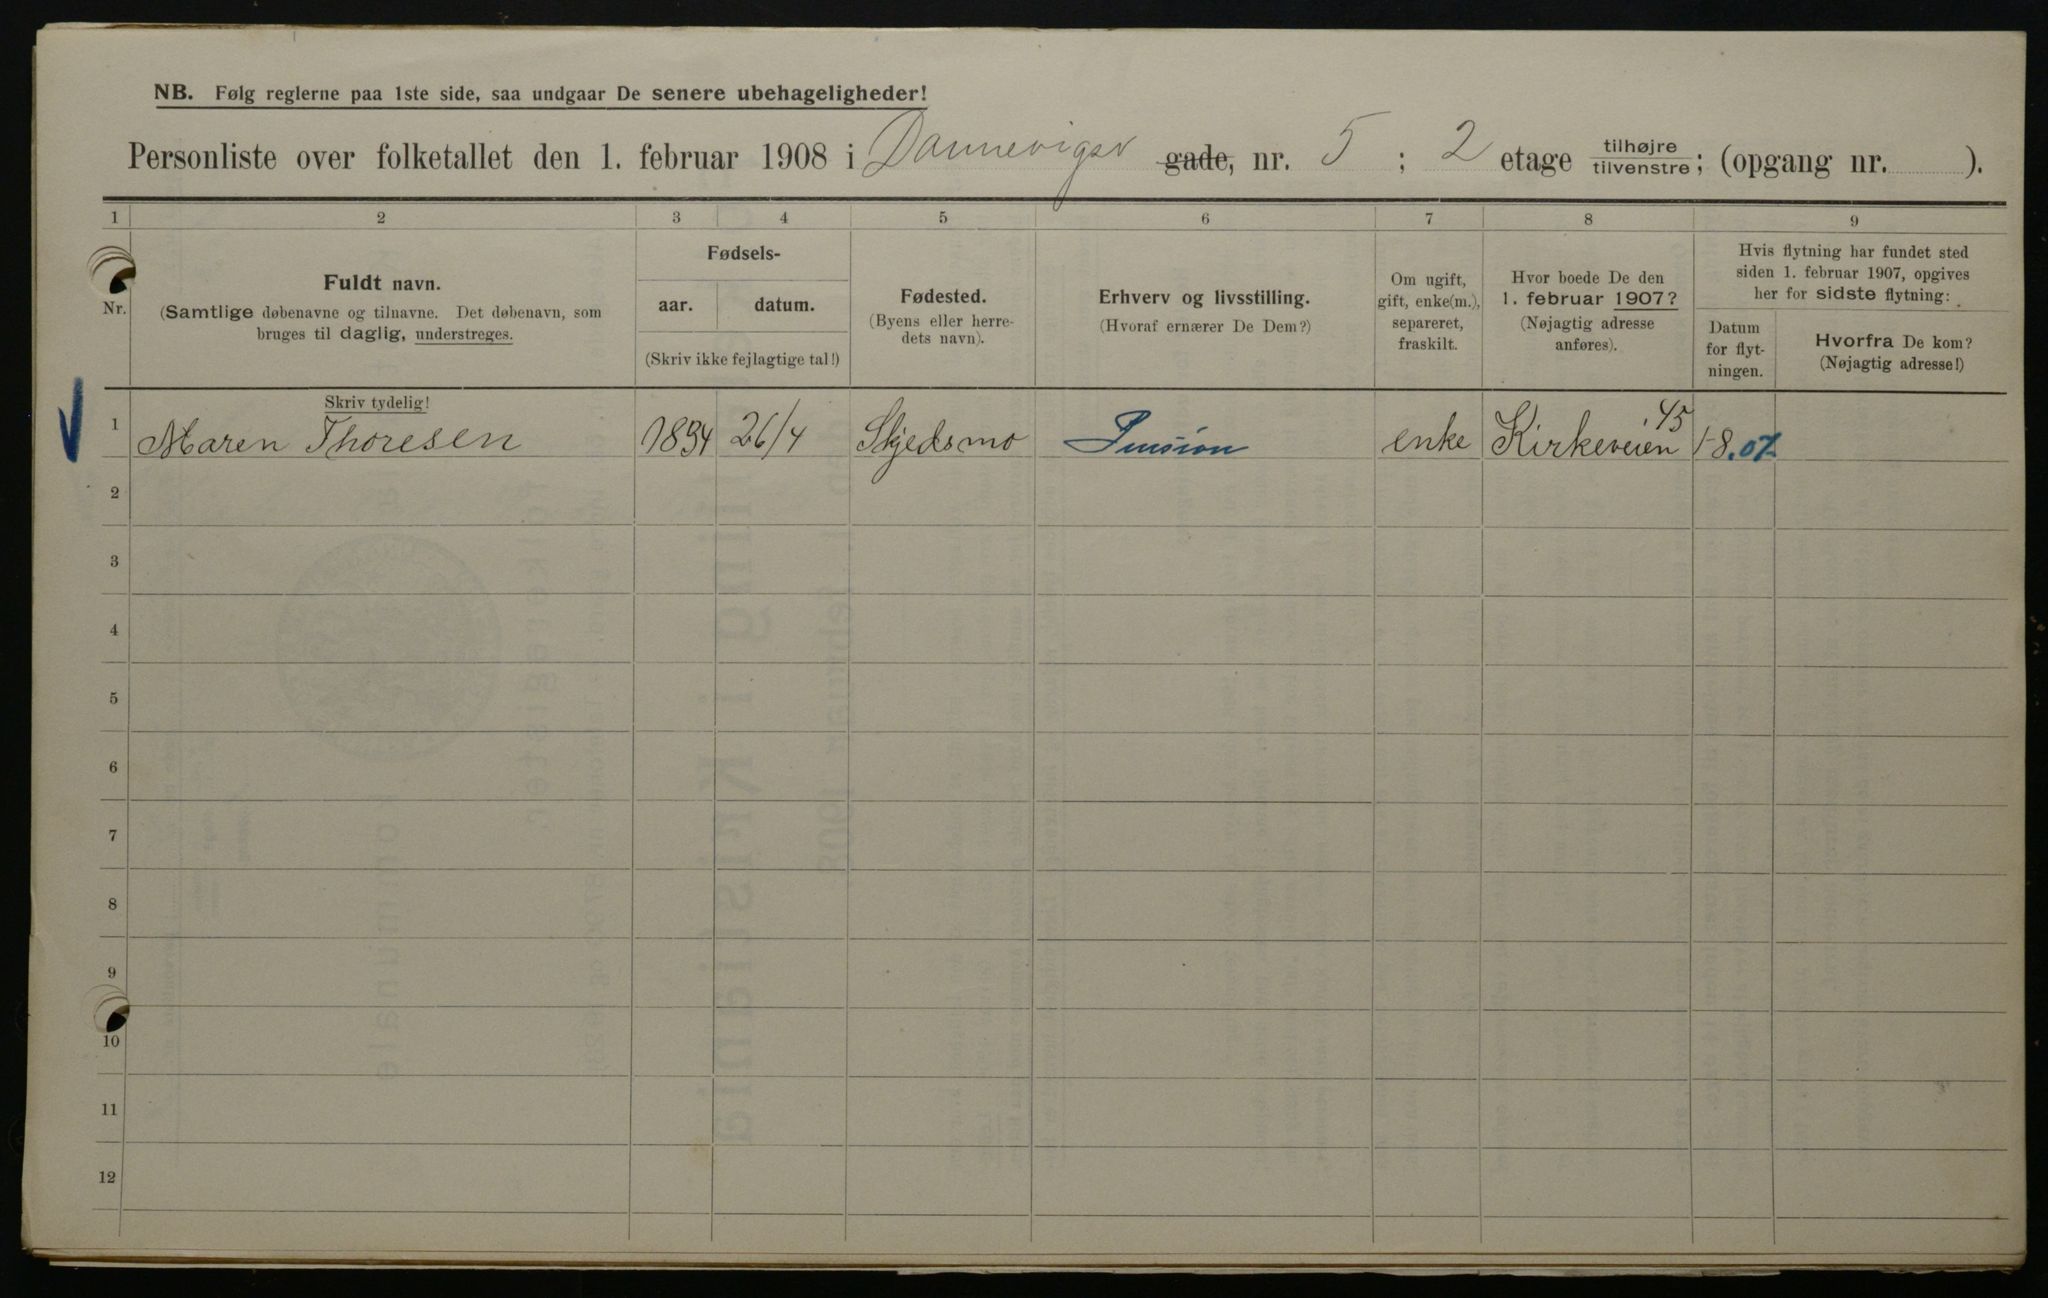 NB. Følg reglerne paa 1ste side, saa undgaar De senere ubehageligheder!
Personliste over folketallet den 1. februar 1908 i Dannevigsv gade, nr. 5 ; 2 etage tilhøjre tilvenstre ; (opgang nr. ).
1 2 3 4 5 6 7 8 9
Nr.
Fuldt navn.
(Samtlige døbenavne og tilnavne. Det døbenavn, som
bruges til daglig, understreges.
Fødsels-
aar. datum.
(Skriv ikke fejlagtige tal!)
Fødested.
(Byens eller herre-
dets navn).
Erhverv og livsstilling.
(Hvoraf ernærer De Dem?)
Om ugift,
gift, enke(m.),
separeret,
fraskilt.
Hvor boede De den
1. februar 1907?
(Nøjagtig adresse
anføres).
Hvis flytning har fundet sted
siden 1. februar 1907, opgives
her for sidste flytning:
Datum
for flyt-
ningen.
Hvorfra De kom?
(Nøjagtig adresse!)
Skriv tydelig!
1 Maren Thoresen 1834 26/4 Skjedsmo Pension enke Kirkeveien 45 1-8.07
2
3
4
5
6
7
8
9
10
11
12